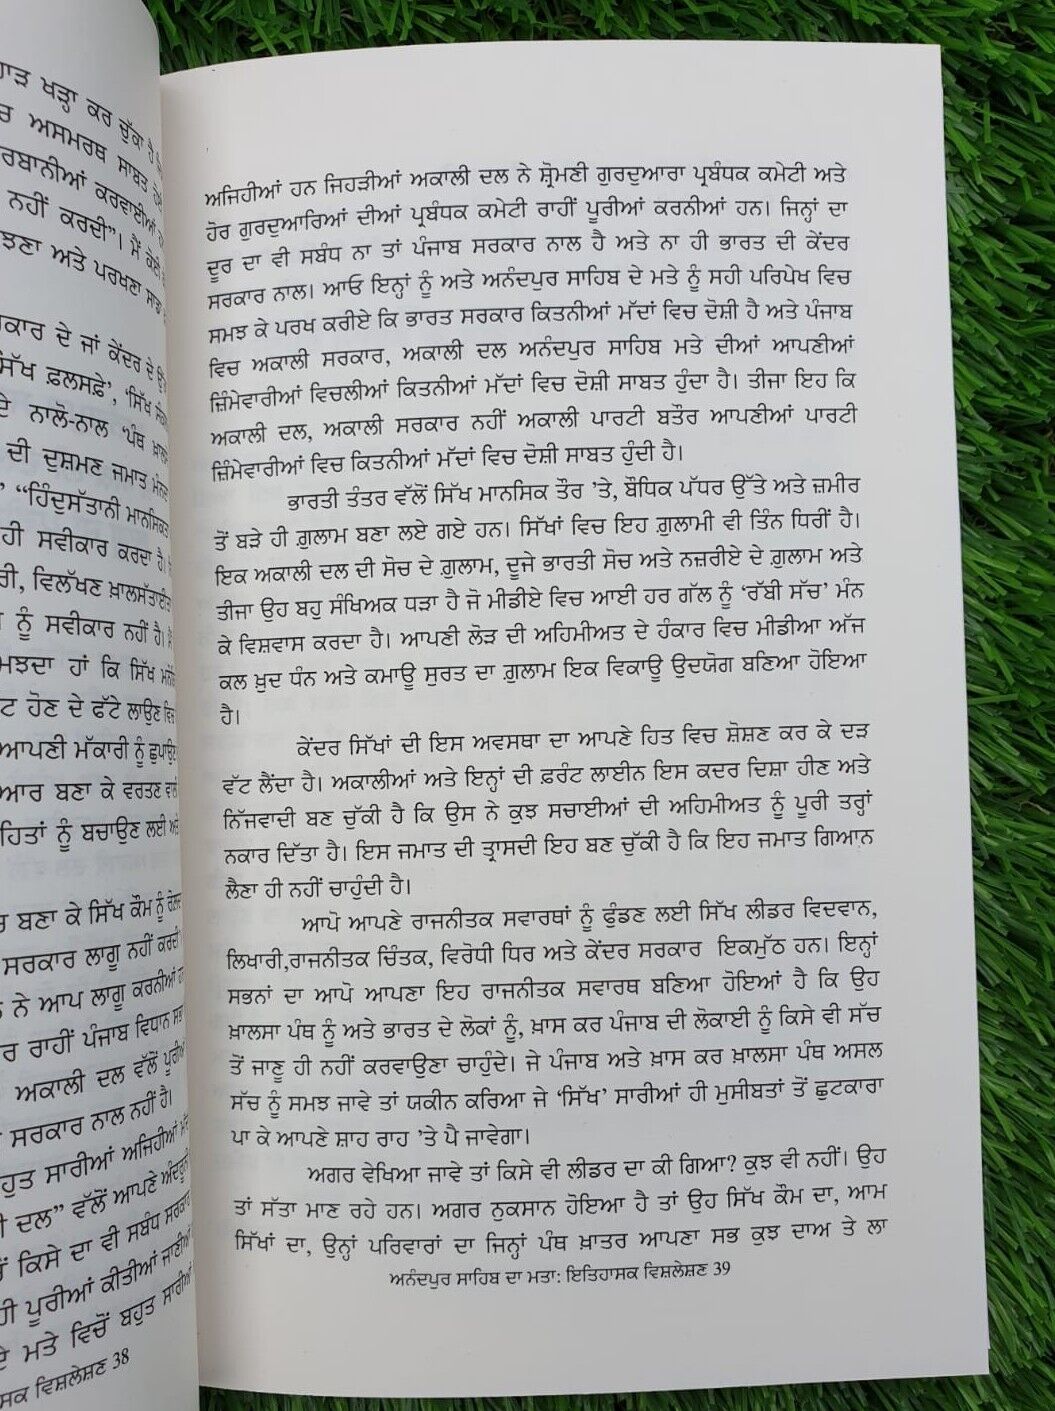 ਾੜ ਖੜ੍ਹਾ ਕਰ ਚੁੱਕਾ ਹੈ
ਚ ਅਸਮਰਥ ਸਾਬਤ
ਰਬਾਨੀਆਂ ਕਰਵਾਈਆਂ
ਨਹੀਂ ਕਰਦੀ”। ਮੈਂ ਕੋਈ
ਝਣਾ ਅਤੇ ਪਰਖਣਾ ਸਾਡਾ
ਕਾਰ ਦੇ ਜਾਂ ਕੇਂਦਰ ਦੇ
ਸਿੱਖ ਫ਼ਲਸਫ਼ੇ’, ‘ਸਿੱਖ
ਦੇ ਨਾਲੋ-ਨਾਲ ‘ਪੰਥ
ਦੀ ਦੁਸ਼ਮਣ ਜਮਾਤ
“ਹਿੰਦੁਸੱਤਾਨੀ ਮਾਨਸਿਕਤਾ
ਹੀ ਸਵੀਕਾਰ ਕਰਦਾ ਹੈ।
ਰੀ, ਵਿਲੱਖਣ ਖ਼ਾਲਸੱਤਾਈ
ਨੂੰ ਸਵੀਕਾਰ ਨਹੀਂ ਹੈ। ਮੈਂ
ਮਝਦਾ ਹਾਂ ਕਿ ਸਿੱਖ
ਟ ਹੋਣ ਦੇ ਫੱਟੇ ਲਾਉਣ ਵਿਚ
ਆਪਣੀ ਮੱਕਾਰੀ ਨੂੰ ਛੁਪਾਉਣ
ਆਰ ਬਣਾ ਕੇ ਵਰਤਣ ਵਾਲੇ
ਹਿਤਾਂ ਨੂੰ ਬਚਾਉਣ ਲਈ ਅਤੇ
ਰ ਬਣਾ ਕੇ ਸਿੱਖ ਕੌਮ ਨੂੰ
ਸਰਕਾਰ ਲਾਗੂ ਨਹੀਂ ਕਰਦੀ
ਨੇ ਆਪ ਲਾਗੂ ਕਰਨੀਆਂ
ਰ ਰਾਹੀਂ ਪੰਜਾਬ ਵਿਧਾਨ ਸਭਾ
ਅਕਾਲੀ ਦਲ ਵੱਲੋਂ ਪੂਰੀਆਂ
ਸਰਕਾਰ ਨਾਲ ਨਹੀਂ ਹੈ।
ਹੁਤ ਸਾਰੀਆਂ ਅਜਿਹੀਆਂ ਮੱਦਾਂ
ੀ ਦਲ” ਵੱਲੋਂ ਆਪਣੇ ਅੰਦਰੂਨੀ
ਕਿਸੇ ਦਾ ਵੀ ਸਬੰਧ ਸਰਕਾਰ
ਹੀ ਪੂਰੀਆਂ ਕੀਤੀਆਂ ਜਾਣੀਆਂ
ਦੇ ਮਤੇ ਵਿਚੋਂ ਬਹੁਤ ਸਾਰੀਆਂ
ਸਕ ਵਿਸ਼ਲੇਸ਼ਣ 38
ਅਜਿਹੀਆਂ ਹਨ ਜਿਹੜੀਆਂ ਅਕਾਲੀ ਦਲ ਨੇ ਸ਼੍ਰੋਮਣੀ ਗੁਰਦੁਆਰਾ ਪ੍ਰਬੰਧਕ ਕਮੇਟੀ ਅਤੇ
ਹੋਰ ਗੁਰਦੁਆਰਿਆਂ ਦੀਆਂ ਪ੍ਰਬੰਧਕ ਕਮੇਟੀ ਰਾਹੀਂ ਪੂਰੀਆਂ ਕਰਨੀਆਂ ਹਨ। ਜਿਨ੍ਹਾਂ ਦਾ
ਦੂਰ ਦਾ ਵੀ ਸਬੰਧ ਨਾ ਤਾਂ ਪੰਜਾਬ ਸਰਕਾਰ ਨਾਲ ਹੈ ਅਤੇ ਨਾ ਹੀ ਭਾਰਤ ਦੀ ਕੇਂਦਰ
ਸਰਕਾਰ ਨਾਲ। ਆਓ ਇਨ੍ਹਾਂ ਨੂੰ ਅਤੇ ਅਨੰਦਪੁਰ ਸਾਹਿਬ ਦੇ ਮਤੇ ਨੂੰ ਸਹੀ ਪਰਿਪੇਖ ਵਿਚ
ਸਮਝ ਕੇ ਪਰਖ ਕਰੀਏ ਕਿ ਭਾਰਤ ਸਰਕਾਰ ਕਿਤਨੀਆਂ ਮੱਦਾਂ ਵਿਚ ਦੋਸ਼ੀ ਹੈ ਅਤੇ ਪੰਜਾਬ
ਵਿਚ ਅਕਾਲੀ ਸਰਕਾਰ, ਅਕਾਲੀ ਦਲ ਅਨੰਦਪੁਰ ਸਾਹਿਬ ਮਤੇ ਦੀਆਂ ਆਪਣੀਆਂ
ਜ਼ਿੰਮੇਵਾਰੀਆਂ ਵਿਚਲੀਆਂ ਕਿਤਨੀਆਂ ਮੱਦਾਂ ਵਿਚ ਦੋਸ਼ੀ ਸਾਬਤ ਹੁੰਦਾ ਹੈ। ਤੀਜਾ ਇਹ ਕਿ
ਅਕਾਲੀ ਦਲ, ਅਕਾਲੀ ਸਰਕਾਰ ਨਹੀਂ ਅਕਾਲੀ ਪਾਰਟੀ ਬਤੌਰ ਆਪਣੀਆਂ ਪਾਰਟੀ
ਜ਼ਿੰਮੇਵਾਰੀਆਂ ਵਿਚ ਕਿਤਨੀਆਂ ਮੱਦਾਂ ਵਿਚ ਦੋਸ਼ੀ ਸਾਬਤ ਹੁੰਦੀ ਹੈ।
ਭਾਰਤੀ ਤੰਤਰ ਵੱਲੋਂ ਸਿੱਖ ਮਾਨਸਿਕ ਤੌਰ ’ਤੇ, ਬੌਧਿਕ ਪੱਧਰ ਉੱਤੇ ਅਤੇ ਜ਼ਮੀਰ
ਤੋਂ ਬੜੇ ਹੀ ਗ਼ੁਲਾਮ ਬਣਾ ਲਏ ਗਏ ਹਨ। ਸਿੱਖਾਂ ਵਿਚ ਇਹ ਗ਼ੁਲਾਮੀ ਵੀ ਤਿੰਨ ਧਿਰੀਂ ਹੈ।
ਇਕ ਅਕਾਲੀ ਦਲ ਦੀ ਸੋਚ ਦੇ ਗ਼ੁਲਾਮ, ਦੂਜੇ ਭਾਰਤੀ ਸੋਚ ਅਤੇ ਨਜ਼ਰੀਏ ਦੇ ਗ਼ੁਲਾਮ ਅਤੇ
ਤੀਜਾ ਉਹ ਬਹੁ ਸੰਖਿਅਕ ਧੜਾ ਹੈ ਜੋ ਮੀਡੀਏ ਵਿਚ ਆਈ ਹਰ ਗੱਲ ਨੂੰ ‘ਰੱਬੀ ਸੱਚ’ ਮੰਨ
ਕੇ ਵਿਸ਼ਵਾਸ ਕਰਦਾ ਹੈ। ਆਪਣੀ ਲੋੜ ਦੀ ਅਹਿਮੀਅਤ ਦੇ ਹੰਕਾਰ ਵਿਚ ਮੀਡੀਆ ਅੱਜ
ਕਲ ਖ਼ੁਦ ਧੰਨ ਅਤੇ ਕਮਾਊ ਸੁਰਤ ਦਾ ਗ਼ੁਲਾਮ ਇਕ ਵਿਕਾਊ ਉਦਯੋਗ ਬਣਿਆ ਹੋਇਆ
ਹੈ।
ਕੇਂਦਰ ਸਿੱਖਾਂ ਦੀ ਇਸ ਅਵਸਥਾ ਦਾ ਆਪਣੇ ਹਿਤ ਵਿਚ ਸ਼ੋਸ਼ਣ ਕਰ ਕੇ ਦੜ
ਵੱਟ ਲੈਂਦਾ ਹੈ। ਅਕਾਲੀਆਂ ਅਤੇ ਇਨ੍ਹਾਂ ਦੀ ਫ਼ਰੰਟ ਲਾਈਨ ਇਸ ਕਦਰ ਦਿਸ਼ਾ ਹੀਣ ਅਤੇ
ਨਿੱਜਵਾਦੀ ਬਣ ਚੁੱਕੀ ਹੈ ਕਿ ਉਸ ਨੇ ਕੁਝ ਸਚਾਈਆਂ ਦੀ ਅਹਿਮੀਅਤ ਨੂੰ ਪੂਰੀ ਤਰ੍ਹਾਂ
ਨਕਾਰ ਦਿੱਤਾ ਹੈ। ਇਸ ਜਮਾਤ ਦੀ ਤ੍ਰਾਸਦੀ ਇਹ ਬਣ ਚੁੱਕੀ ਹੈ ਕਿ ਇਹ ਜਮਾਤ ਗਿਆਨ
ਲੈਣਾ ਹੀ ਨਹੀਂ ਚਾਹੁੰਦੀ ਹੈ।
ਆਪੋ ਆਪਣੇ ਰਾਜਨੀਤਕ ਸਵਾਰਥਾਂ ਨੂੰ ਫੁੰਡਣ ਲਈ ਸਿੱਖ ਲੀਡਰ ਵਿਦਵਾਨ,
ਲਿਖਾਰੀ,ਰਾਜਨੀਤਕ ਚਿੰਤਕ, ਵਿਰੋਧੀ ਧਿਰ ਅਤੇ ਕੇਂਦਰ ਸਰਕਾਰ ਇਕਮੁੱਠ ਹਨ। ਇਨ੍ਹਾਂ
ਸਭਨਾਂ ਦਾ ਆਪੋ ਆਪਣਾ ਇਹ ਰਾਜਨੀਤਕ ਸਵਾਰਥ ਬਣਿਆ ਹੋਇਆਂ ਹੈ ਕਿ ਉਹ
ਖ਼ਾਲਸਾ ਪੰਥ ਨੂੰ ਅਤੇ ਭਾਰਤ ਦੇ ਲੋਕਾਂ ਨੂੰ, ਖ਼ਾਸ ਕਰ ਪੰਜਾਬ ਦੀ ਲੋਕਾਈ ਨੂੰ ਕਿਸੇ ਵੀ ਸੱਚ
ਤੋਂ ਜਾਣੂ ਹੀ ਨਹੀਂ ਕਰਵਾਉਣਾ ਚਾਹੁੰਦੇ। ਜੇ ਪੰਜਾਬ ਅਤੇ ਖ਼ਾਸ ਕਰ ਖ਼ਾਲਸਾ ਪੰਥ ਅਸਲ
ਸੱਚ ਨੂੰ ਸਮਝ ਜਾਵੇ ਤਾਂ ਯਕੀਨ ਕਰਿਆ ਜੇ ‘ਸਿੱਖ’ ਸਾਰੀਆਂ ਹੀ ਮੁਸੀਬਤਾਂ ਤੋਂ ਛੁਟਕਾਰਾ
ਪਾ ਕੇ ਆਪਣੇ ਸ਼ਾਹ ਰਾਹ ’ਤੇ ਪੈ ਜਾਵੇਗਾ।
ਅਗਰ ਵੇਖਿਆ ਜਾਵੇ ਤਾਂ ਕਿਸੇ ਵੀ ਲੀਡਰ ਦਾ ਕੀ ਗਿਆ? ਕੁਝ ਵੀ ਨਹੀਂ। ਉਹ
ਤਾਂ ਸੱਤਾ ਮਾਣ ਰਹੇ ਹਨ। ਅਗਰ ਨੁਕਸਾਨ ਹੋਇਆ ਹੈ ਤਾਂ ਉਹ ਸਿੱਖ ਕੌਮ ਦਾ, ਆਮ
ਸਿੱਖਾਂ ਦਾ, ਉਨ੍ਹਾਂ ਪਰਿਵਾਰਾਂ ਦਾ ਜਿਨ੍ਹਾਂ ਪੰਥ ਖ਼ਾਤਰ ਆਪਣਾ ਸਭ ਕੁਝ ਦਾਅ ਤੇ ਲਾ
ਅਨੰਦਪੁਰ ਸਾਹਿਬ ਦਾ ਮਤਾ: ਇਤਿਹਾਸਕ ਵਿਸ਼ਲੇਸ਼ਣ 39